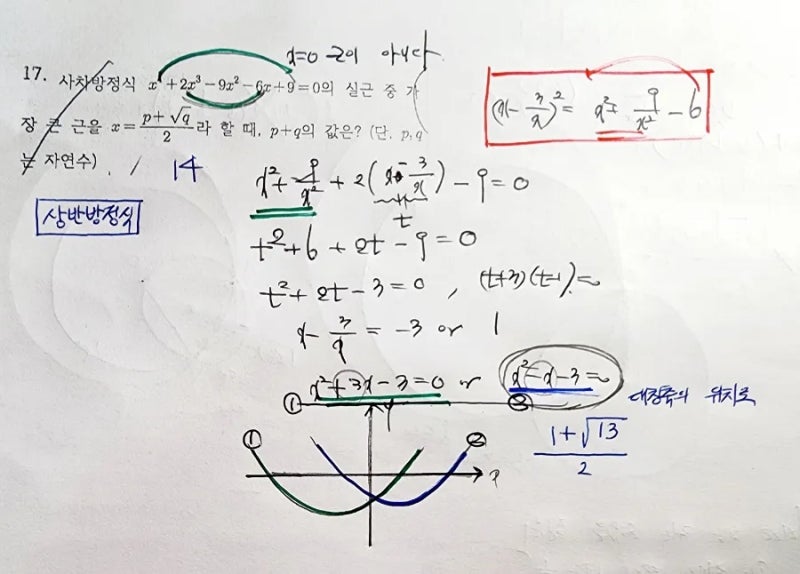 x=0 근이 아니다.
17. 사차방정식 x⁴+2x³−9x²−6x+9=0의 실근 중 가
장 큰 근을 x=(p+√q)/2라 할 때, p+q의 값은? (단, p, q
는 자연수)
14
(x−3/x)²= x²+9/x²−6
상반방정식
x²+9/x²+2(x−3/x)−9=0
t
t²+6+2t−9=0
t²+2t−3=0, (t+3)(t−1)=0
x−3/x=−3 or 1
x²+3x−3=0 or x²−x−3=0
① ②
대칭축의 위치로
(1+√13)/2
y
① ②
x